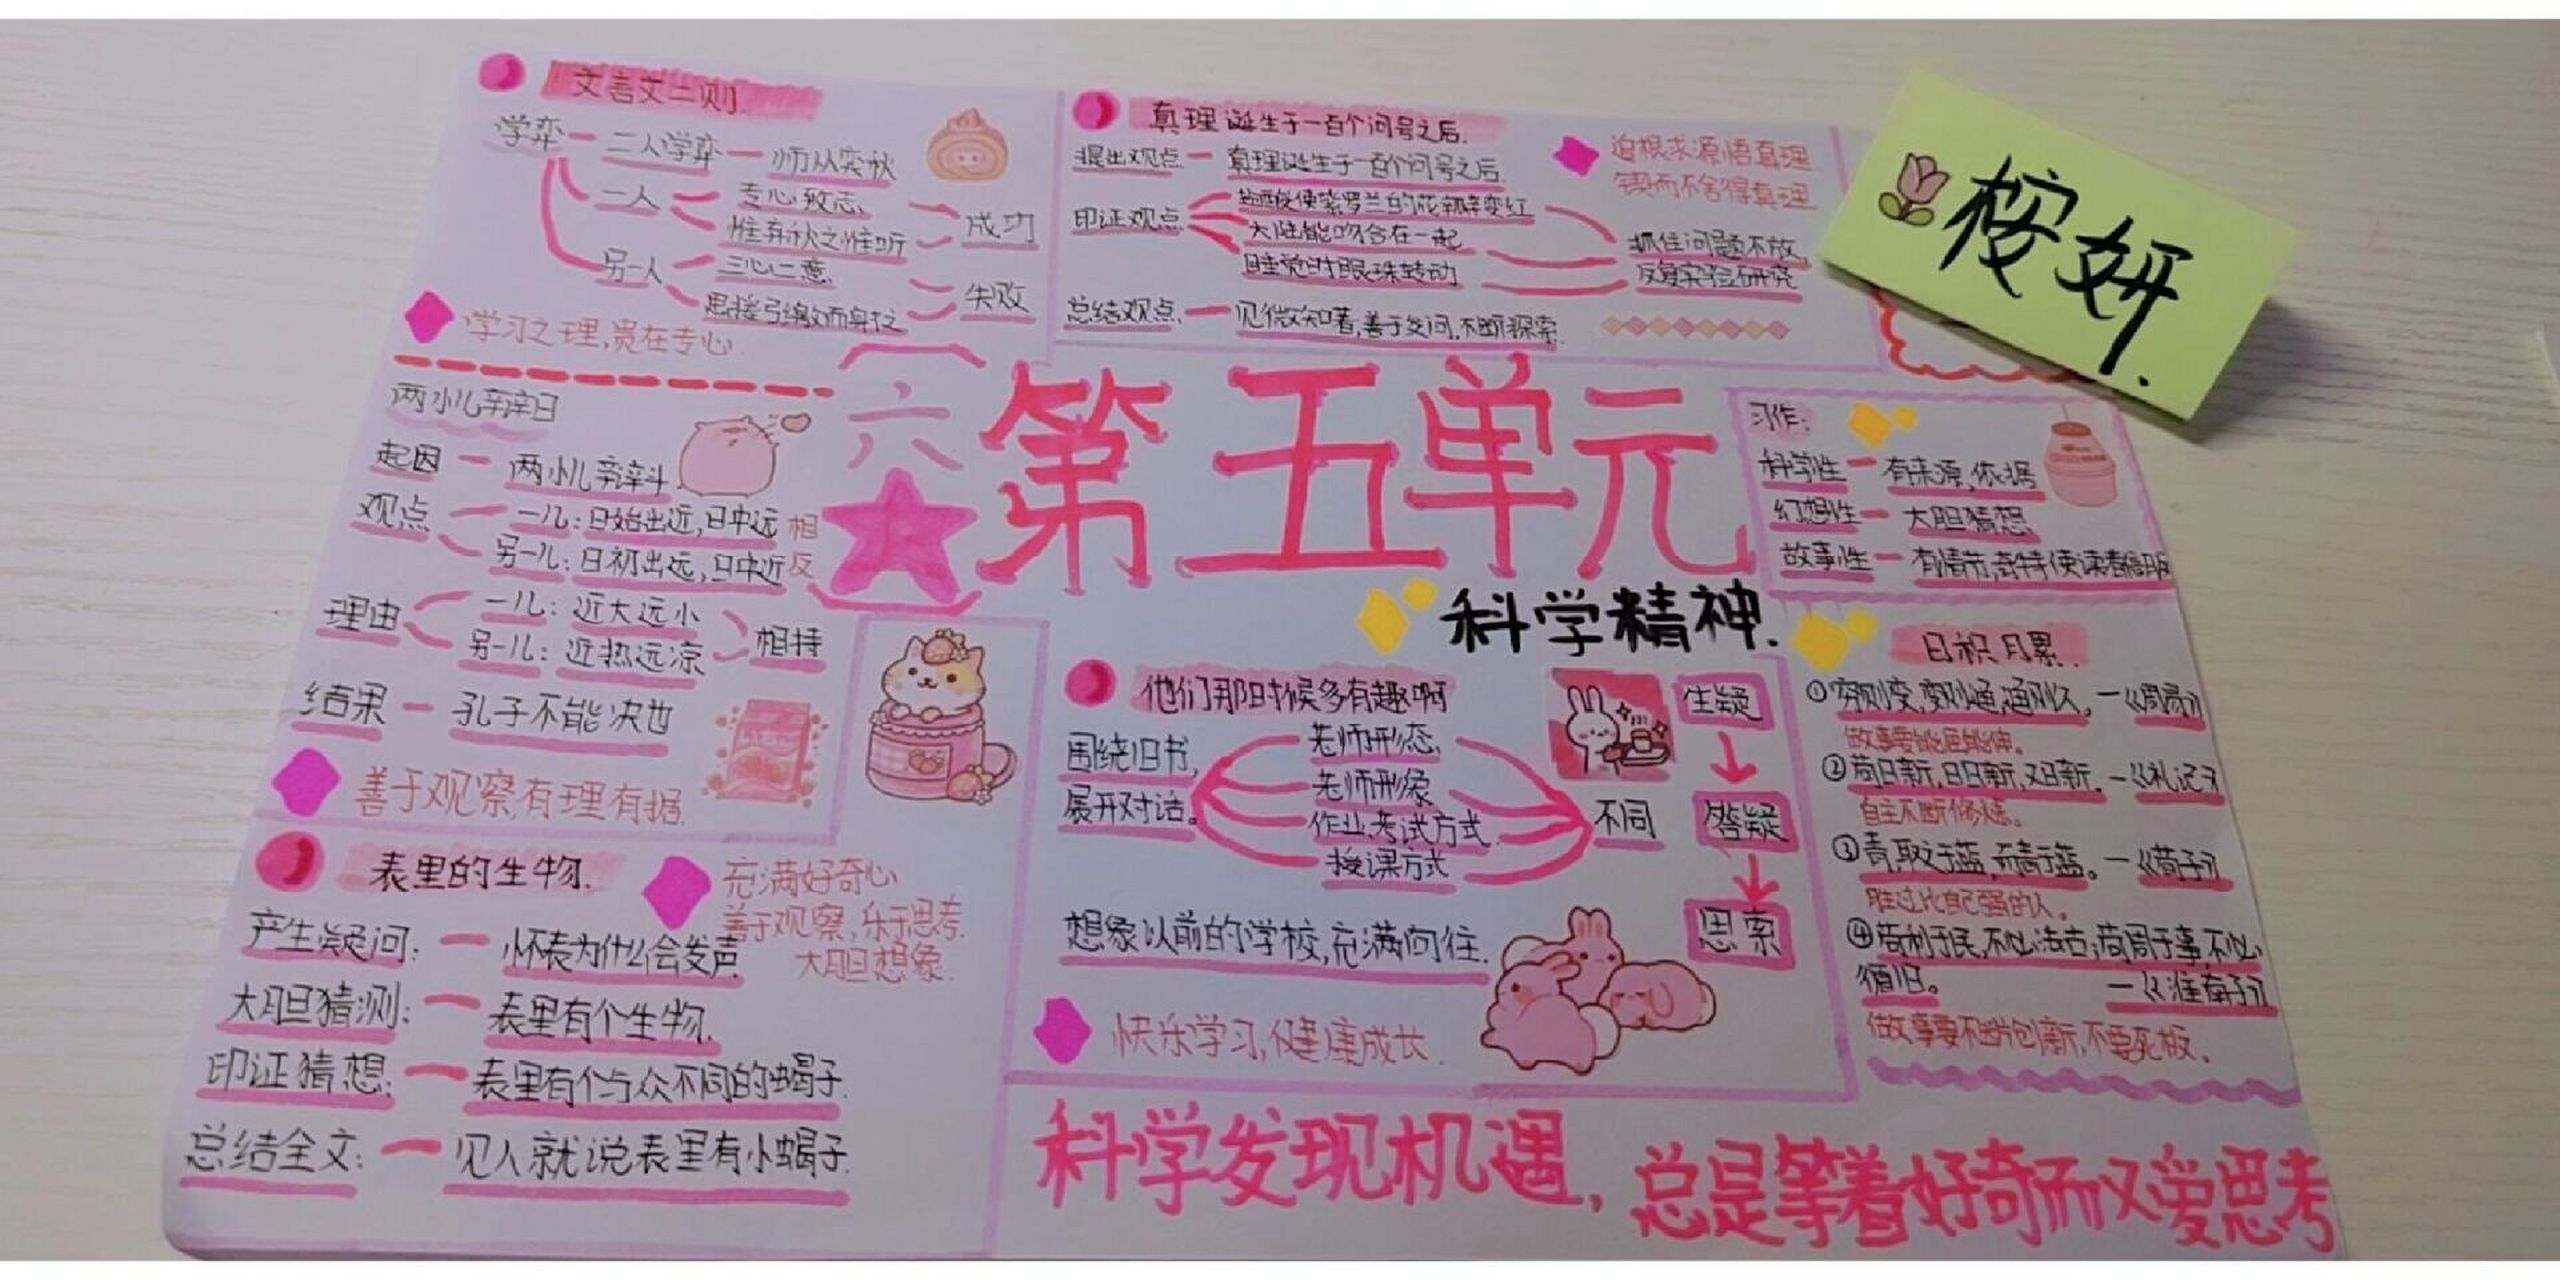 文言文二则.
学弈 二人学弈 师从奕秋
一人 专心致志、 惟弈秋之惟听 成功
另一人 三心二意、 思援弓缴而射之 失败
学习之理,贵在专心.
两小儿辩日
起因 两小儿辩斗
观点 一儿:日始出近,日中远 相
另一儿:日初出远,日中近 反
理由 一儿:近大远小
另一儿:近热远凉 相持
结果 孔子不能决也
善于观察,有理有据.
表里的生物.
充满好奇心
善于观察,乐于思考.
大胆想象.
产生疑问: 怀表为什么会发声
大胆猜测: 表里有个生物.
印证猜想: 表里有个与众不同的蝎子.
总结全文: 见人就说表里有小蝎子.
真理诞生于一百个问号之后.
提出观点 真理诞生于一百个问号之后.
印证观点 盐酸使紫罗兰的花瓣变红
大陆能吻合在一起
睡觉时眼珠转动
抓住问题不放,
反复实验研究
总结观点 见微知著,善于发问,不断探索.
追根求源悟真理
锲而不舍得真理
桉妍.
六
第五单元
科学精神.
他们那时候多有趣啊
围绕旧书,
展开对话。
老师形态、
老师形象
作业、考试方式.
授课方式
不同
想象以前的学校,充满向往.
快乐学习,健康成长.
生疑
答疑
思索
习作:
科学性 有来源,依据
幻想性 大胆猜想
故事性 有情节,奇特使读者信服
日积月累.
①穷则变,变则通,通则久。—《周易》
做事要能屈能伸。
②苟日新,日日新,又日新。—《礼记》
自主不断修炼。
③青,取之于蓝,而青于蓝。—《荀子》
胜过比自己强的人。
④苟利于民,不必法古;苟周于事,不必
循旧。 —《淮南子》
做事要不断创新,不要死板.
科学发现机遇,总是等着好奇而又爱思考